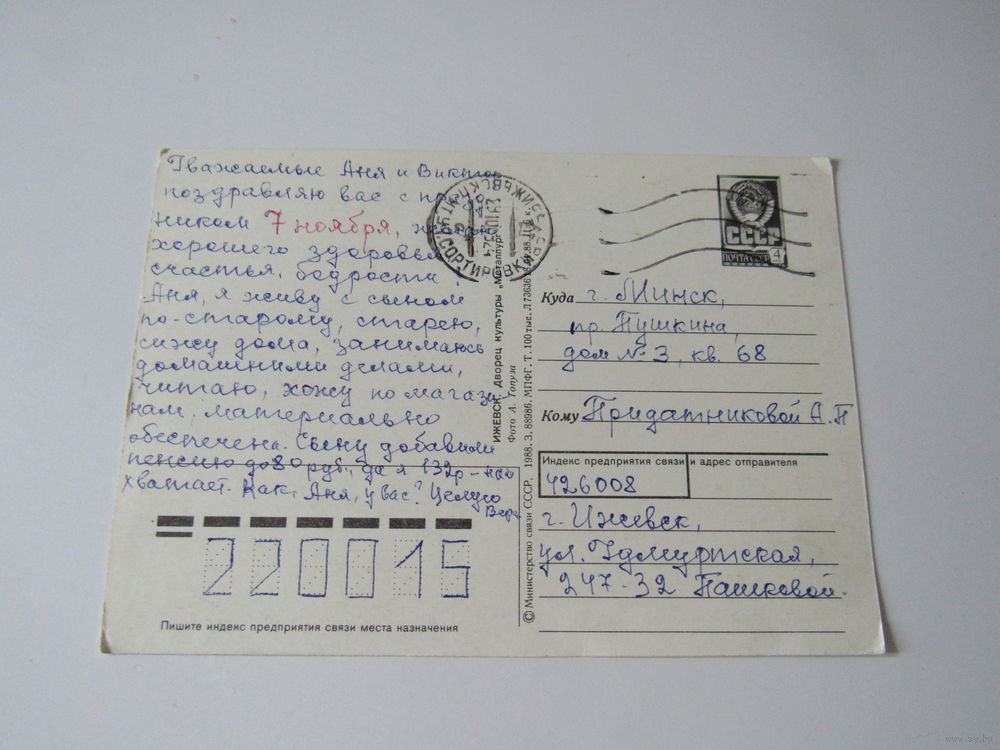 Уважаемые Аня и Виктор
поздравляю вас с празд
ником 7 ноября, желаю
хорошего здоровья
счастья, бодрости.
Аня, я живу с сыном
по-старому, старею,
сижу дома, занимаюсь
домашними делами,
читаю, хожу по магази-
нам, материально
обеспечена. Сыну добавили
пенсию до 80 руб., да я 132р - нам
хватает. Как, Аня, у вас? Целую
Вера
220015
Пишите индекс предприятия связи места назначения
ИЖЕВСК. Дворец культуры „Металлург"
Фото А. Топуза
© Министерство связи СССР, 1988. З. 88986. МПФГ. Т. 100 тыс.
СОРТИРОВКА
СССР
ПОЧТА СССР
4
Куда г. Минск,
пр. Пушкина,
дом № 3, кв. 68
Кому Придатниковой А. П
Индекс предприятия связи и адрес отправителя
426008
г. Ижевск,
ул. Удмуртская,
247-32 Пашковой.
www.ay.by